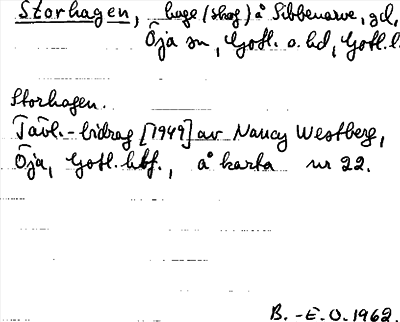 Storhagen, hage (skog) å Sibbenarve, gd,
Öja sn, Gotl. s. hd, Gotl. l.
Storhagen.
Tävl.-bidrag [1949] av Nancy Westberg,
Öja, Gotl. hbf., å karta nr 22.
B.-E.O. 1962.